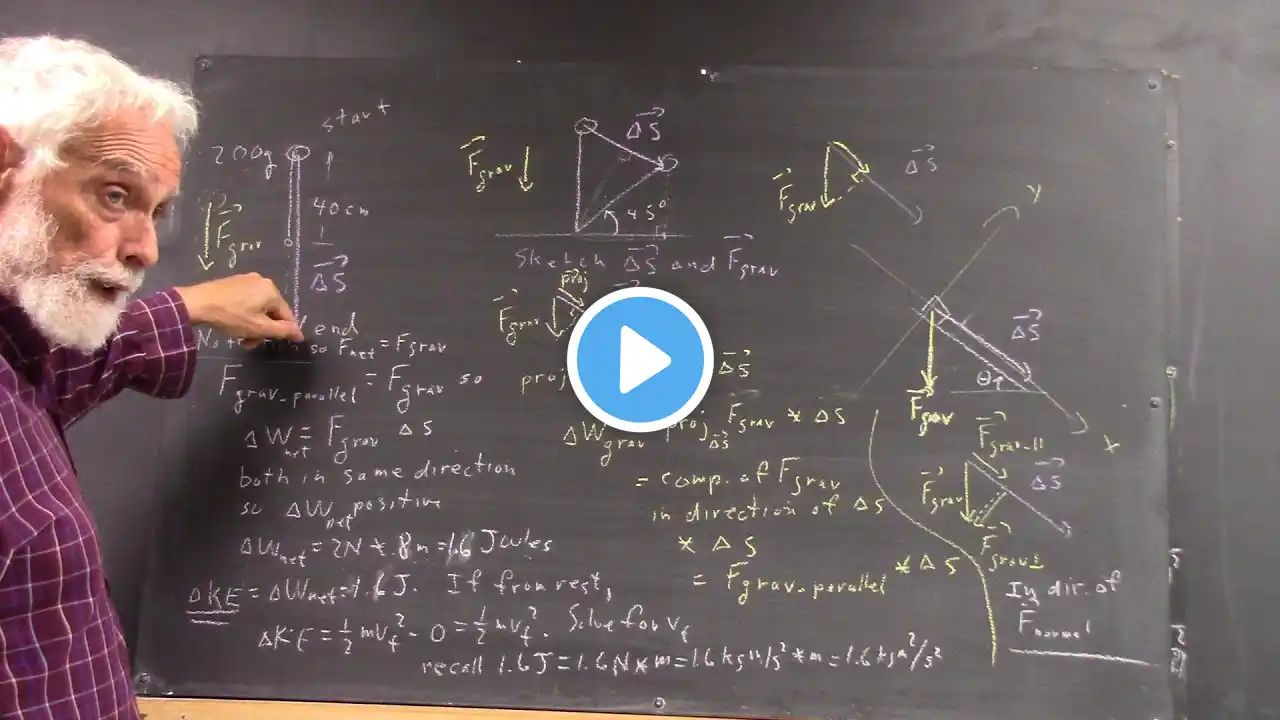 start
200g
40 cm
F grav
ΔS
end
so F net = F grav
F grav_parallel = F grav so
ΔW net = F grav ΔS
both in same direction
so ΔW net positive
ΔW net = 2N * .8 m = 1.6 Joules
ΔKE = ΔW net = 1.6 J. If from rest,
ΔKE = 1/2 m v f ² - 0 = 1/2 m v f ². Solve for v f
recall 1.6 J = 1.6 N * m = 1.6 kg m/s² * m = 1.6 kg m²/s²
F grav
ΔS
45°
Sketch ΔS and F grav
proj
F grav
proj
ΔS
ΔW grav
proj ΔS F grav * ΔS
= comp. of F grav
in direction of ΔS
* ΔS
= F grav_parallel * ΔS
F grav
ΔS
y
ΔS
θ
F grav
x
F grav_||
F grav
ΔS
F grav⊥
In dir. of
F normal